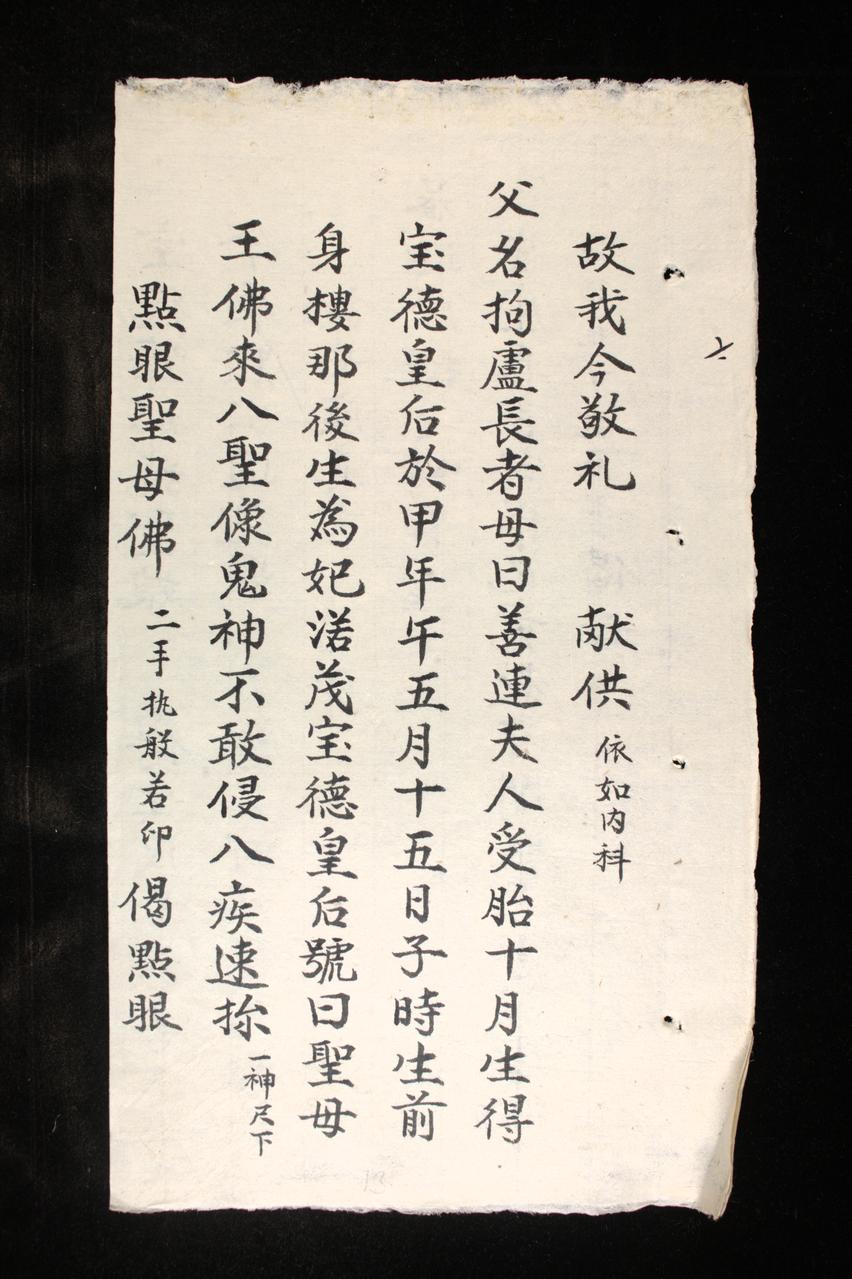 故我今敬礼 献供 依如內科
父名拘盧長者毋曰善連夫人受胎十月生得
宝德皇后於甲年午五月十五日子時生前
身樓那後生為妃渃茂宝德皇后號曰聖毋
王佛來八聖像鬼神不敢侵八疾速
一神尺下
點眼聖母佛 二手执般若印 偈點眼